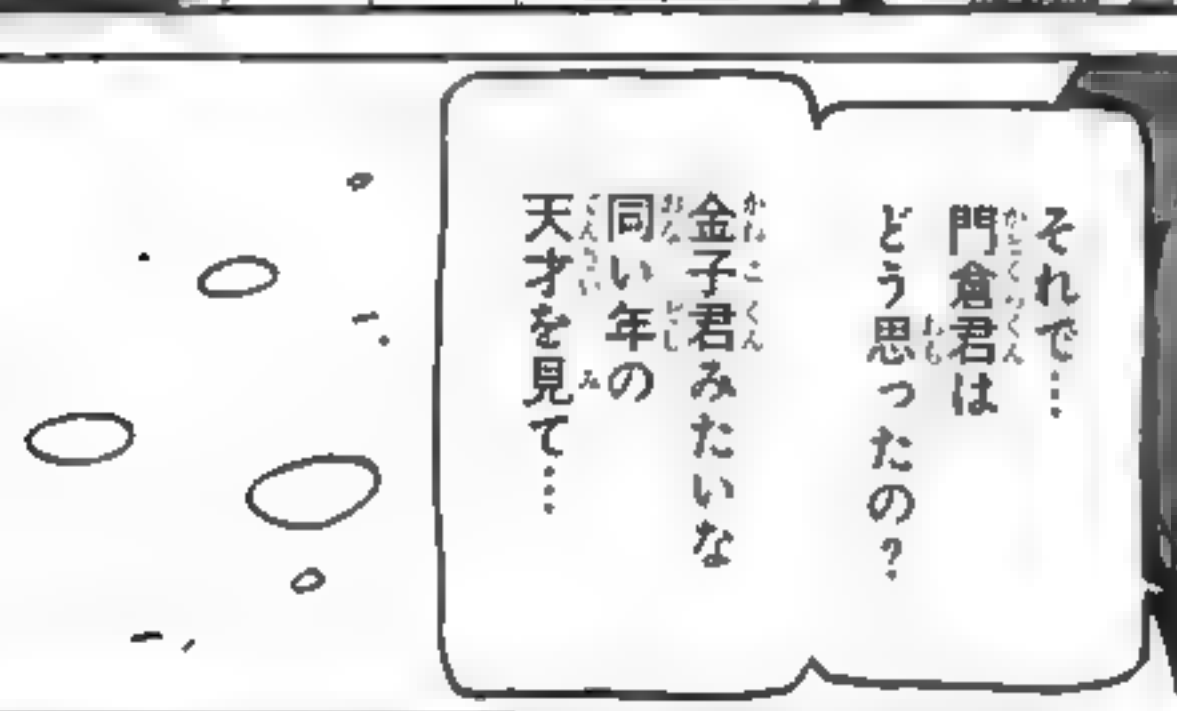 それで…
門倉君は
どう思ったの？
金子君みたいな
同い年の
天才を見て…